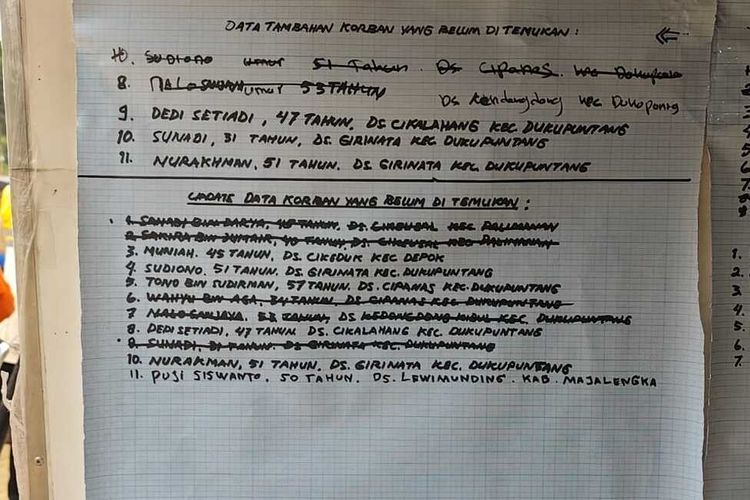 DATA TAMBAHAN KORBAN YANG BELUM DI TEMUKAN :
10. SUDIONO UMUR 51 TAHUN. DS CIPANAS. KEC DUKUPUNTANG
8. NALOSUJAN UMUR 53 TAHUN
DS Kendangdong KEC DUKUPONTNG
9. DEDI SETIADI, 47 TAHUN. DS CIKALAHANG KEC. DUKUPUNTANG
10. SUNADI, 31 TAHUN, DS. GIRINATA KEC DUKUPUNTANG
11. NURAKHMAN, 51 TAHUN. DS. GIRINATA KEC. DUKUPUNTANG
UPDATE DATA KORBAN YANG BELUM DI TEMUKAN :
1. SANADI BIN DARYA, 48 TAHUN, DS. CIKEUSAL KEC PALIMANAN
2. SAKIRA BIN JUMAIR, 40 TAHUN, DS. CIKEUSAL KEC PALIMANAN
3. MUNIAH. 45 TAHUN, DS. CIKEDUK KEC DEPOK
4. SUDIONO. 51 TAHUN. DS. GIRINATA KEC. DUKUPUNTANG
5. TONO BIN SUDIRMAN, 57 TAHUN. DS. CIPANAS KEC. DUKUPUNTANG
6. WAHYU BIN AGA, 34 TAHUN. DS. CIPANAS KEC. DUKUPUNTANG
7 NALO SANJAYA. 53 TAHUN, DS KEDONGDONG KIDUL KEC. DUKUPUNTANG
8. DEDI SETIADI, 47 TAHUN DS. CIKALAHANG KEC. DUKUPUNTANG
9. SUNADI, 31 TAHUN. DS. GIRINATA KEC. DUKUPUNTANG
10. NURAKMAN, 51 TAHUN. DS. GIRINATA KEC. DUKUPUNTANG
11. PUJI SISWANTO, 50 TAHUN. DS. LEWIMUNDING. KAB. MAJALENGKA
1.
2.
3
4.
5.
6.
7.